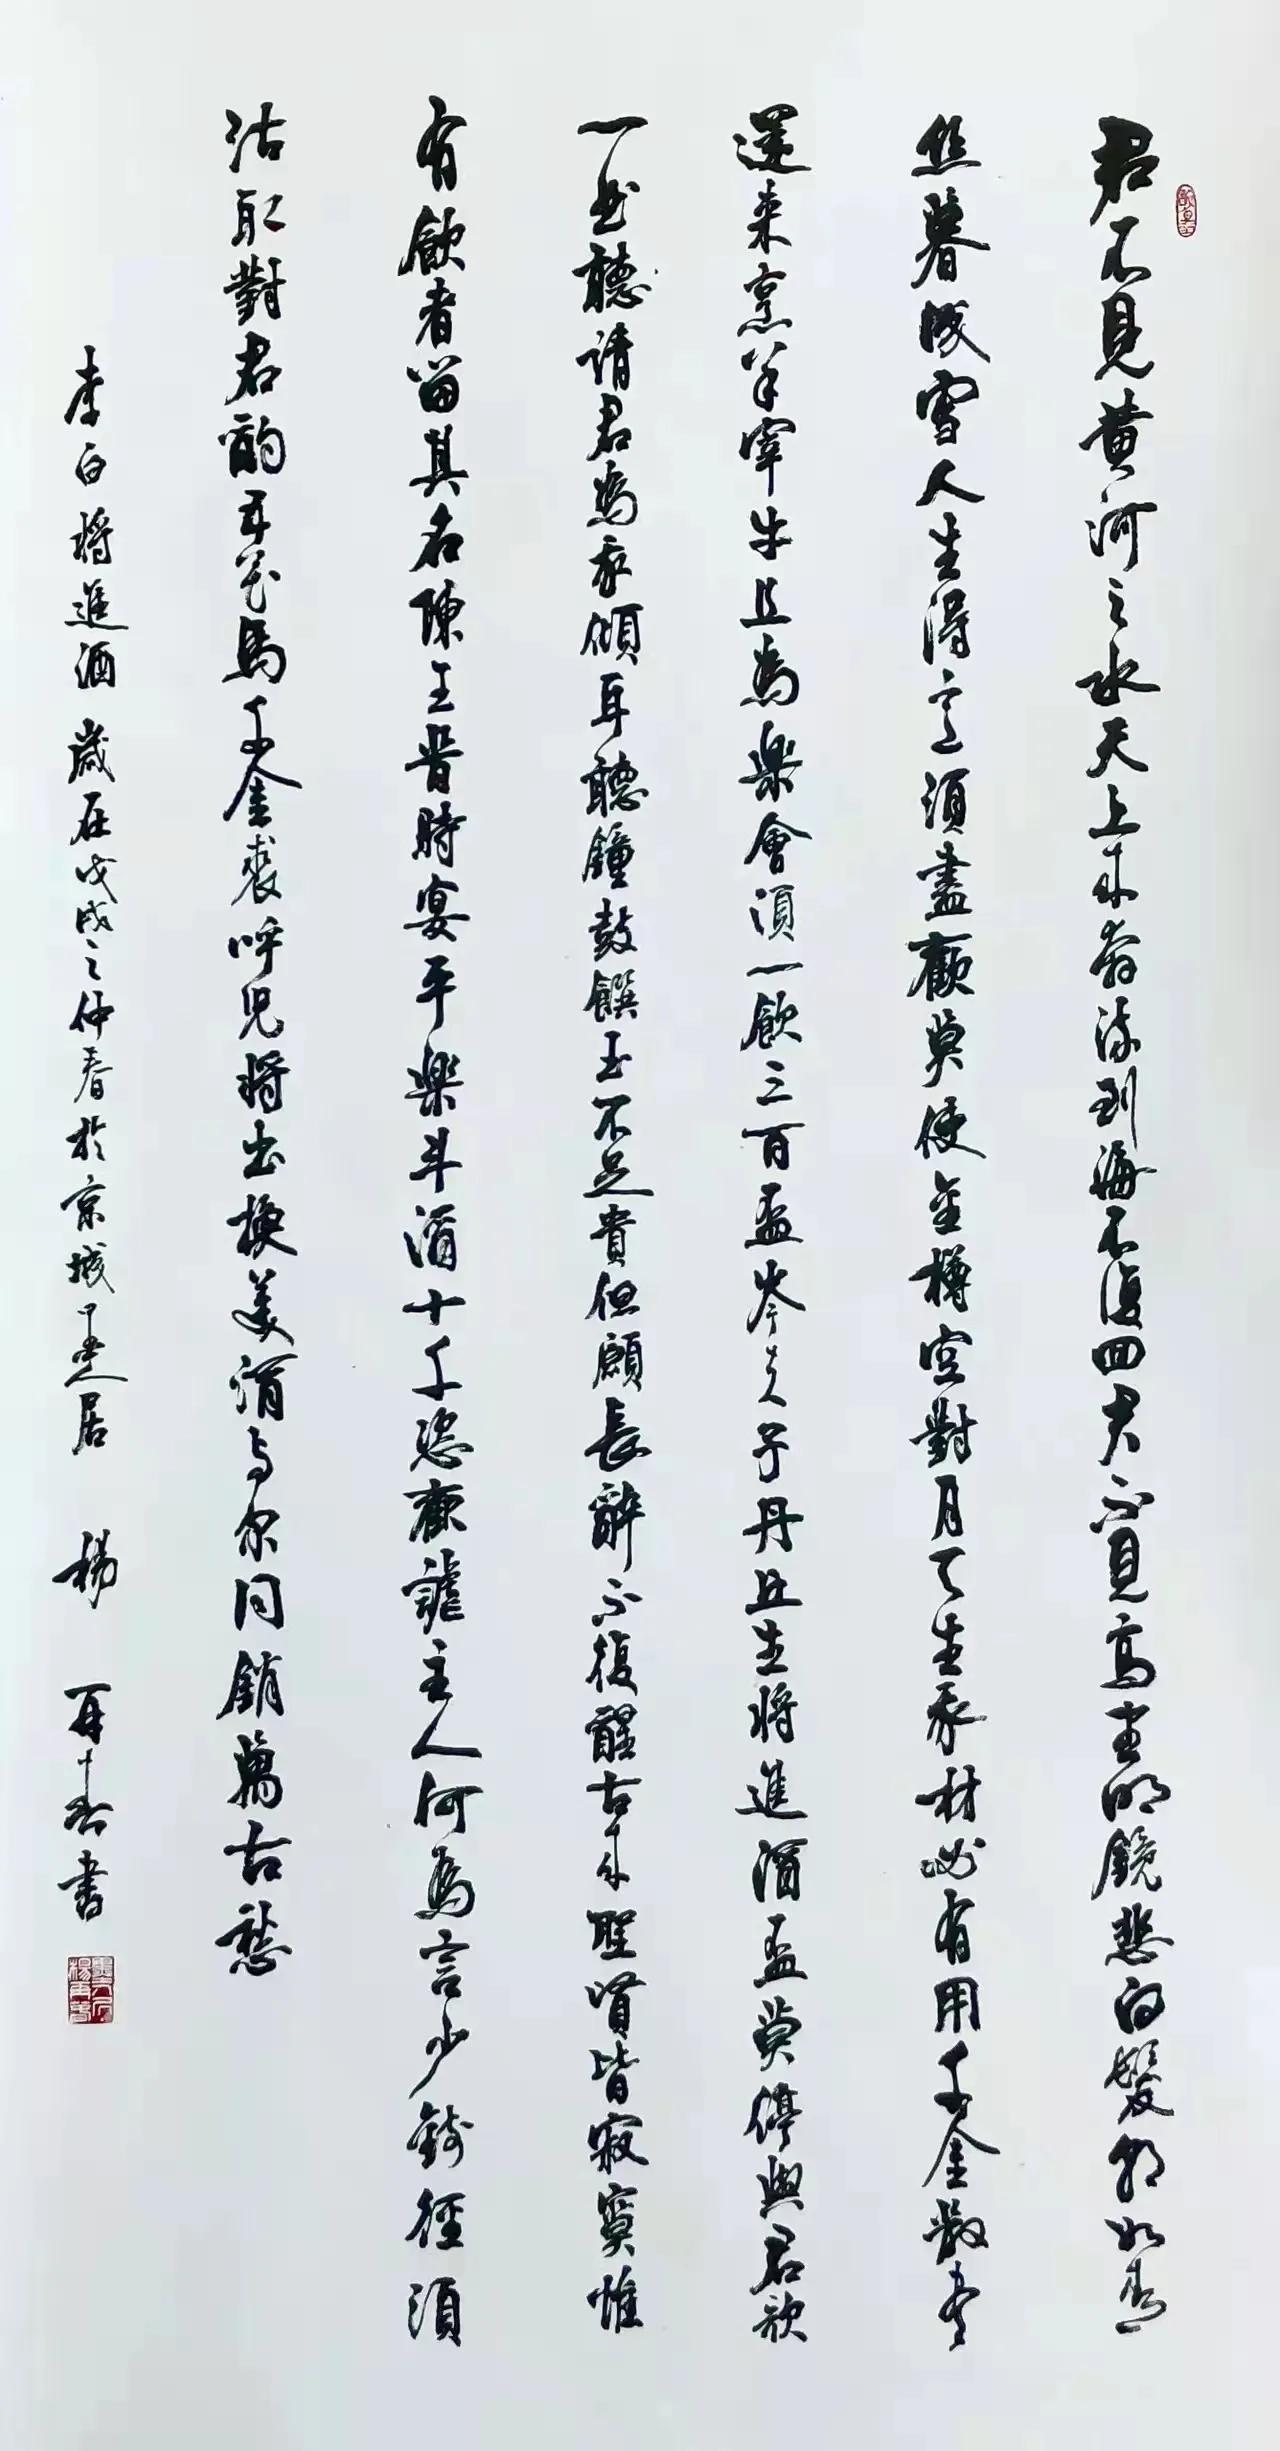 君不見黄河之水天上来奔流到海不復回君不見高堂明鏡悲白髮朝如青
丝暮成雪人生得意須盡歡莫使金樽空對月天生我材必有用千金散盡
還来烹羊宰牛且為樂會須一飲三百盃岑夫子丹丘生將進酒盃莫停與君歌
一曲聽請君為我傾耳聽鐘鼓饌玉不足貴但願長醉不復醒古来聖賢皆寂寞惟
有飲者留其名陳王昔時宴平樂斗酒十千恣歡謔主人何為言少錢徑須
沽取對君酌五花馬千金裘呼兒將出換美酒与尔同銷萬古愁
李白將進酒 歲在戊戌之仲春於京城墨人居 楊再春書